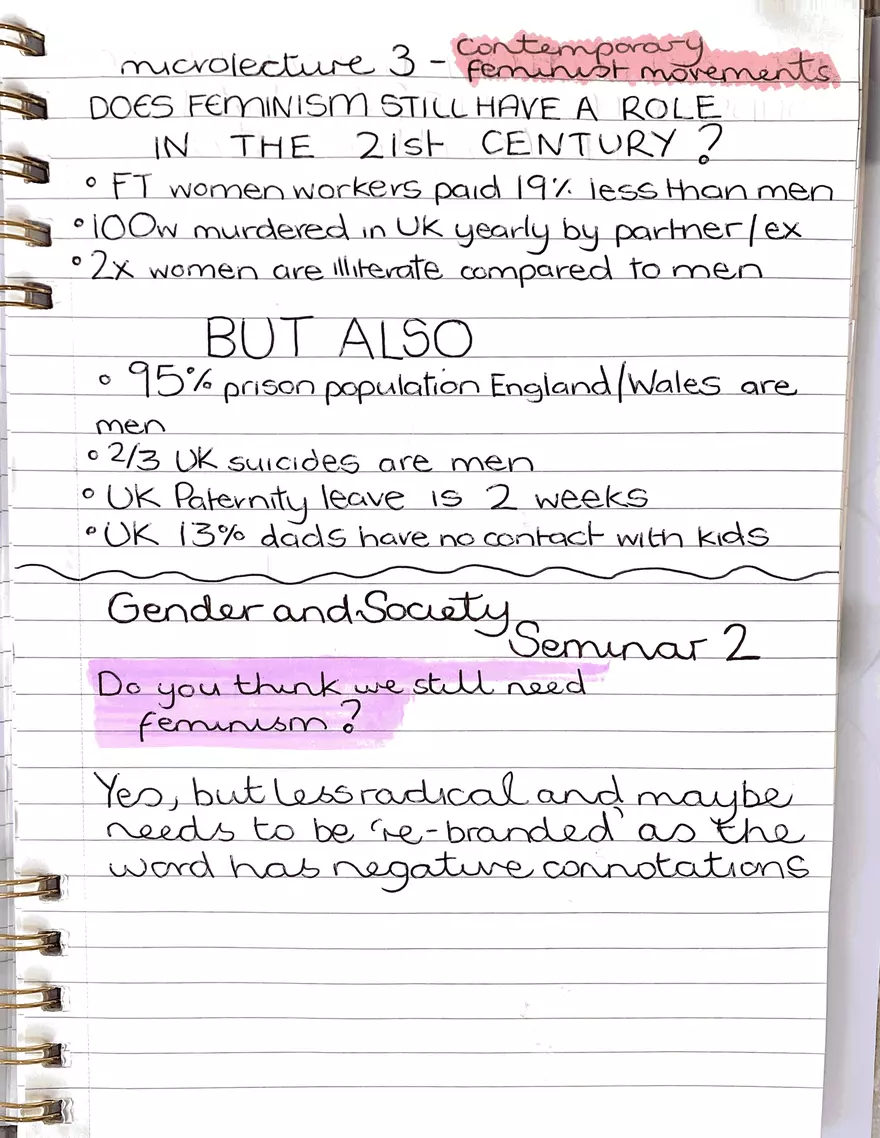 microlecture 3 - contemporary
feminist movements
DOES FEMINISM STILL HAVE A ROLE
IN THE 21st CENTURY?
° FT women workers paid 19% less than men
° 100w murdered in UK yearly by partner/ex
° 2x women are illiterate compared to men
BUT ALSO
° 95% prison population England/Wales are
men
° 2/3 UK suicides are men
° UK Paternity leave is 2 weeks
° UK 13% dads have no contact with kids
Gender and Society
Seminar 2
Do you think we still need
feminism?
Yes, but less radical and maybe
needs to be 're-branded' as the
word has negative connotations